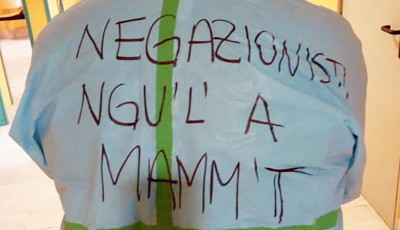 NEGAZIONISTI
NGU'L' A
MAMM'T